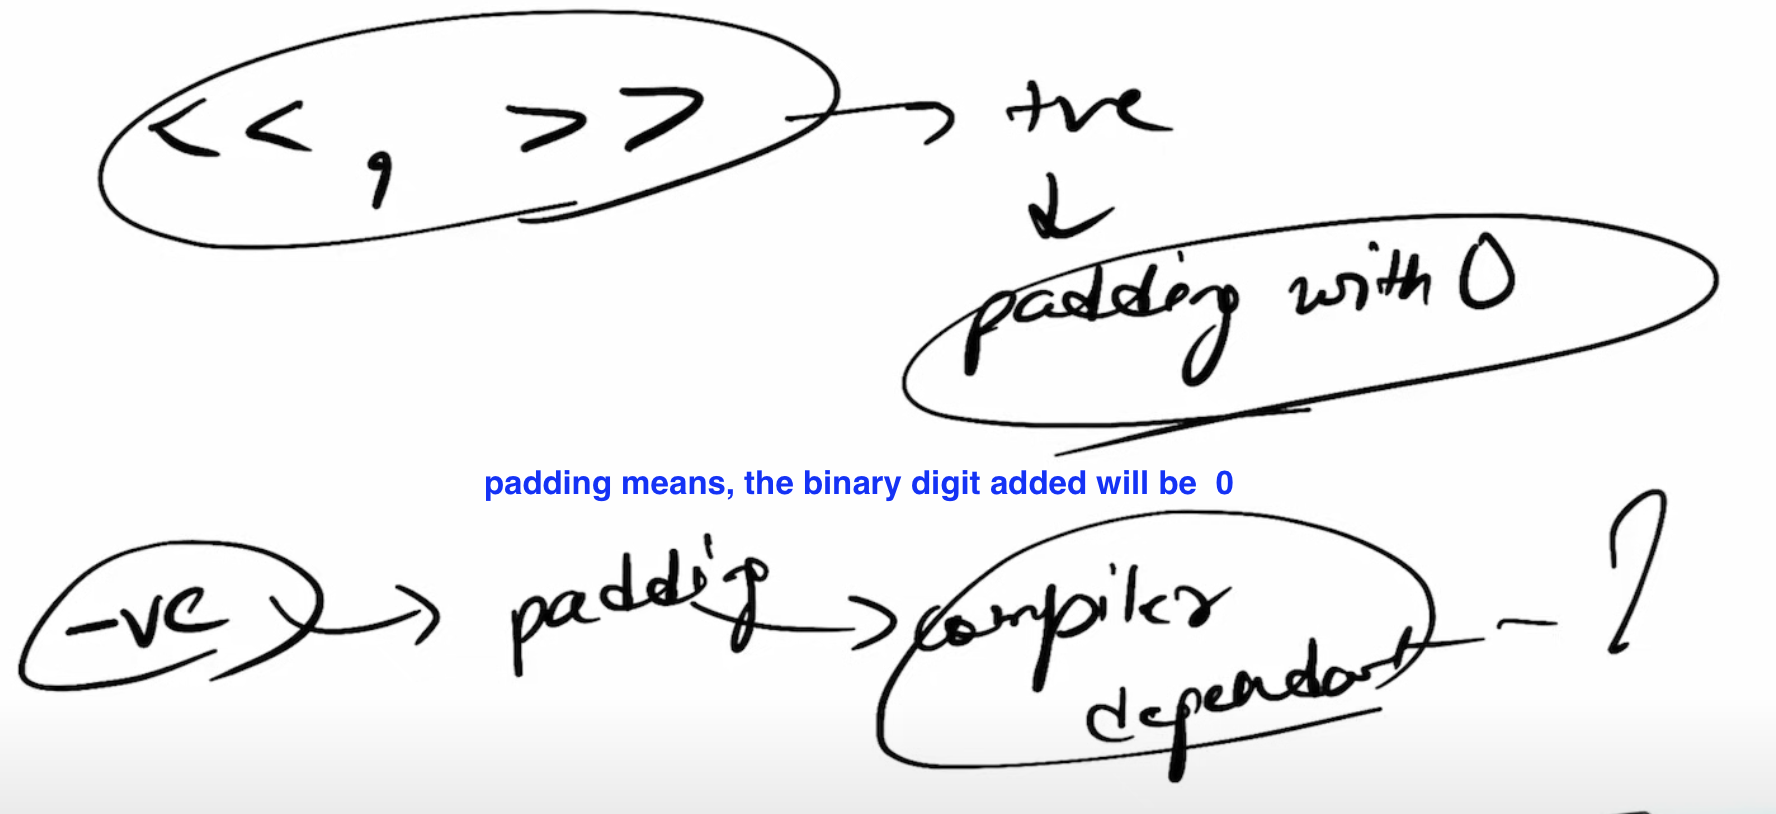 << , >> → +ve
↓
padding with 0
padding means, the binary digit added will be 0
-ve → padding → compiler dependant - ?